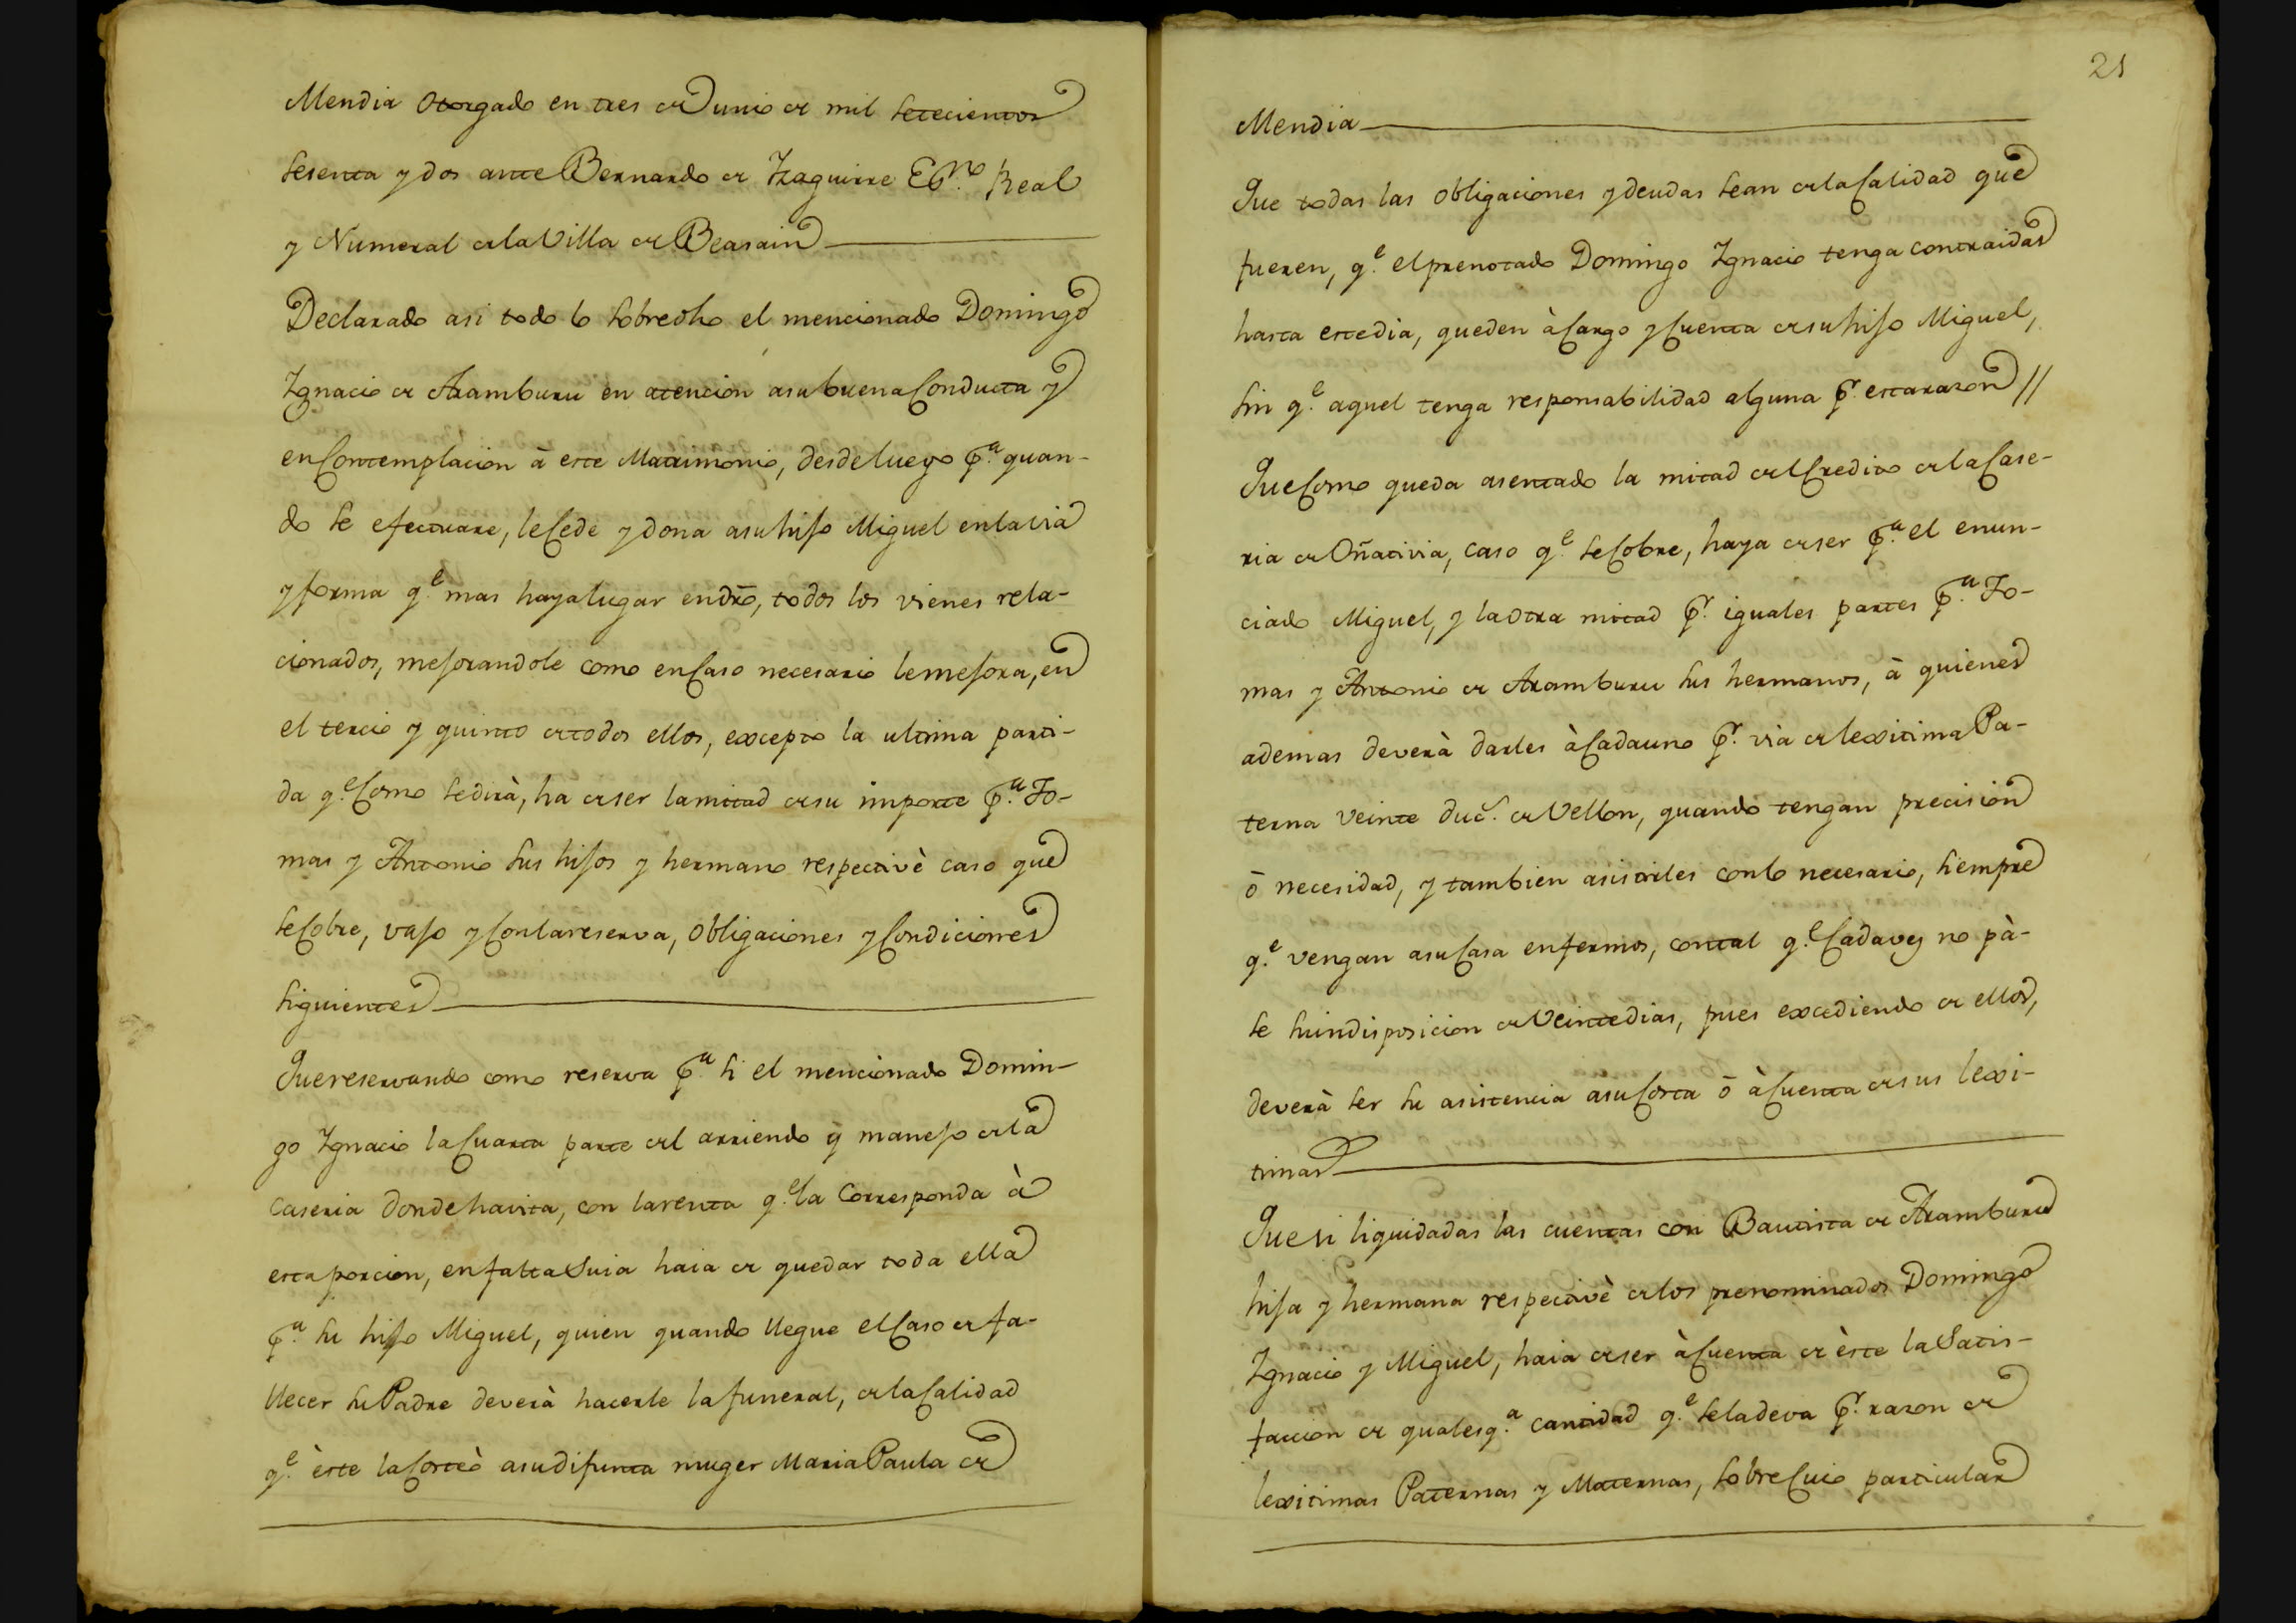 Mendia otorgado en tres de Junio de mil setecientos
sesenta y dos ante Bernardo de Yzaguirre Esno. Real
y Numeral de la Villa de Beasain
Declarado asi todo lo sobredho el mencionado Domingo
Ygnacio de Aramburu en atencion a su buena Conducta y
en Contemplacion à este Matrimonio, desde luego pa. quan-
do se efectuare, le Cede y dona a su hijo Miguel en la via
y forma qe. mas haya lugar en dro, todos los vienes rela-
cionados, mejorandole como en Caso necesario le mejora, en
el tercio y quinto de todos ellos, excepto la ultima parti-
da qe. Como se dirà, ha de ser la mitad de su importe pa. To-
mas y Antonio sus hijos y hermano respectivè caso que
se Cobre, vajo y Con la reserva, obligaciones y Condiciones
siguientes
Que reservando como reserva pa. si el mencionado Domin-
go Ygnacio la Cuarta parte del arriendo y manejo de la
caseria donde havita, con la renta qe. la Corresponda à
esta porcion, en falta Suia haia de quedar toda ella
pa. su hijo Miguel, quien quando llegue el Caso de fa-
llecer su Padre deverà hacerle la funeral, de la Calidad
qe. èste la Costeò a su difunta muger Maria Paula de
21
Mendia
Que todas las obligaciones y deudas sean de la Calidad que
fueren, qe. el prenotado Domingo Ygnacio tenga contraidas
hasta este dia, queden à Cargo y Cuenta de su hijo Miguel,
sin qe. aquel tenga responsabilidad alguna pr. esta razon //
Que Como queda asentado la mitad del Credito de la Case-
ria de Oñativia, caso qe. se Cobre, haya de ser pa. el enun-
ciado Miguel, y la otra mitad pr. iguales partes pa. To-
mas y Antonio de Aramburu sus hermanos, à quienes
ademas deverà darles à Cada uno pr. via de lexitima Pa-
terna veinte duc. de Vellon, quando tengan precision
ò necesidad, y tambien asistirles con lo necesario, siempre
qe. vengan a su Casa enfermos, con tal qe. Cada vez no pà-
se su indisposicion de Veinte dias, pues excediendo de ellos,
deverà ser su asistencia a su Costa ò à Cuenta de sus lexi-
timas
Que si liquidadas las cuentas con Bautista de Aramburu
hija y hermana respectivè de los prenominados Domingo
Ygnacio y Miguel, haia de ser à Cuenta de èste la Satis-
faccion de qualesqa. cantidad qe. se la deva pr. razon de
lexitimas Paternas y Maternas, sobre Cuio particular